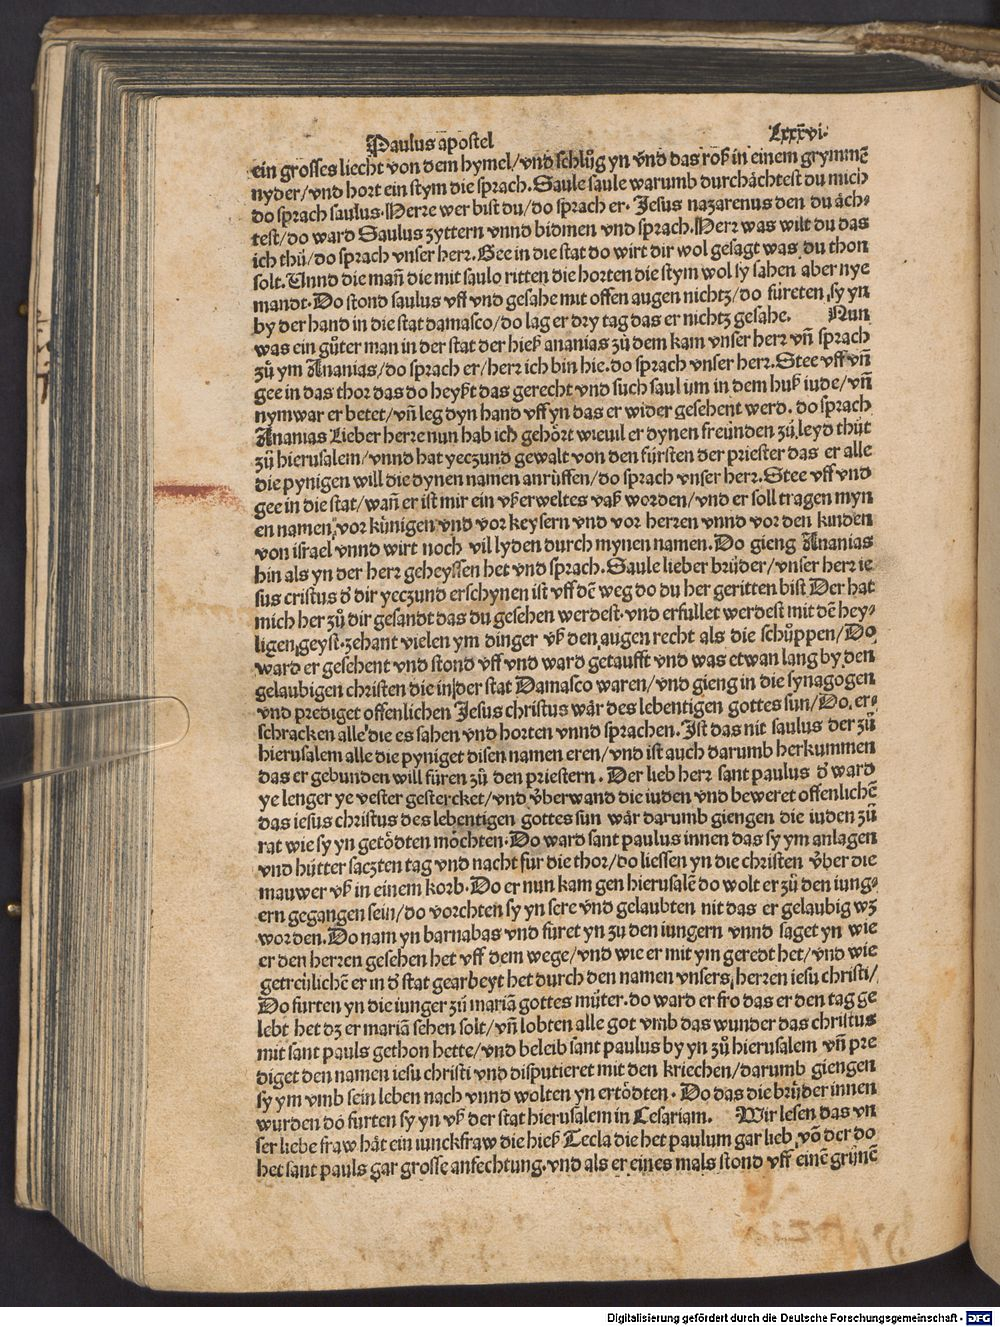 Paulus apostel Lxxxvi.
ein grosses liecht von dem hymel/vnd schlůg yn vnd das roß in einem grymmē
nyder/vnd hort ein stym die sprach. Saule saule warumb durchächtest du mich
do sprach saulus. Herre wer bist du/do sprach er. Jesus nazarenus den du äch⸗
test/do ward Saulus zyttern vnnd bidmen vnd sprach. Herr was wilt du das
ich thů/do sprach vnser herr. Gee in die stat do wirt dir wol gesagt was du thon
solt. Vnnd die man̄ die mit saulo ritten die horten die stym wol sy sahen aber nye
mandt. Do stond saulus vff vnd gesahe mit offen augen nichtz/do füreten sy yn
by der hand in die stat damasco/do lag er dry tag das er nichtz gesahe. Nun
was ein gůter man in der stat der hieß ananias zů dem kam vnser herr vn̄ sprach
zů ym Ananias/do sprach er/herr ich bin hie. do sprach vnser herr. Stee vff vn̄
gee in das thor das do heyßt das gerecht vnd such saul um in dem huß iude/vn̄
nym war er betet/vn̄ leg dyn hand vff yn das er wider gesehent werd. do sprach
Ananias Lieber herre nun hab ich gehört wieuil er dynen freünden zů leyd thůt
zů hierusalem/vnnd hat yeczund gewalt von den fürsten der priester das er alle
die pynigen will die dynen namen anrůffen/do sprach vnser herr. Stee vff vnd
gee in die stat/wan̄ er ist mir ein vßerweltes vaß worden/vnd er soll tragen myn
en namen vor künigen vnd vor keysern vnd vor herren vnnd vor den kinden
von israel vnnd wirt noch vil lyden durch mynen namen. Do gieng Ananias
hin als yn der herr geheyssen het vnd sprach. Saule lieber brůder/vnser herr ie
sus cristus d̄ dir yeczund erschynen ist vff dē weg do du her geritten bist Der hat
mich her zů dir gesandt das du gesehen werdest. vnd erfullet werdest mit dē hey⸗
ligen geyst. zehant vielen ym dinger vß den augen recht als die schůppen/Do
ward er gesehent vnd stond vff vnd ward getaufft vnd was etwan lang by den
gelaubigen christen die in der stat Damasco waren/vnd gieng in die synagogen
vnd prediget offenlichen Jesus christus wär des lebentigen gottes sun/Do er⸗
schracken alle die es sahen vnd horten vnnd sprachen. Ist das nit saulus der zů
hierusalem alle die pyniget disen namen eren/vnd ist auch darumb herkummen
das er gebunden will füren zů den priestern. Der lieb herr sant paulus d̄ ward
ye lenger ye vester gestercket/vnd v̈berwand die iuden vnd beweret offenlichē
das iesus christus des lebentigen gottes sun wär darumb giengen die iuden zů
rat wie sy yn getödten möchten. Do ward sant paulus innen das sy ym anlagen
vnd hütter saczten tag vnd nacht für die thor/do liessen yn die christen v̈ber die
mauwer vß in einem korb. Do er nun kam gen hierusalē do wolt er zů den iung⸗
ern gegangen sein/do vorchten sy yn sere vnd gelaubten nit das er gelaubig wz
worden. Do nam yn barnabas vnd füret yn zu den iungern vnnd saget yn wie
er den herren gesehen het vff dem wege/vnd wie er mit ym geredt het/vnd wie
getreülichē er in d̄ stat gearbeyt het durch den namen vnsers herren iesu christi/
Do furten yn die iunger zů mariā gottes můter. do ward er fro das er den tag ge
lebt het dz er mariā sehen solt/vn̄ lobten alle got vmb das wunder das christus
mit sant pauls gethon hette/vnd beleib sant paulus by yn zů hierusalem vn̄ pre
diget den namen iesu christi vnd disputieret mit den kriechen/darumb giengen
sy ym vmb sein leben nach vnnd wolten yn ertödten. Do das die brüder innen
wurden do furten sy yn vß der stat hierusalem in Cesariam. Wir lesen das vn
ser liebe fraw hät ein iunckfraw die hieß Tecla die het paulum gar lieb vō der do
het sant pauls gar grosse anfechtung. vnd als er eines mals stond vff einē grünē
Digitalisierung gefördert durch die Deutsche Forschungsgemeinschaft - DFG